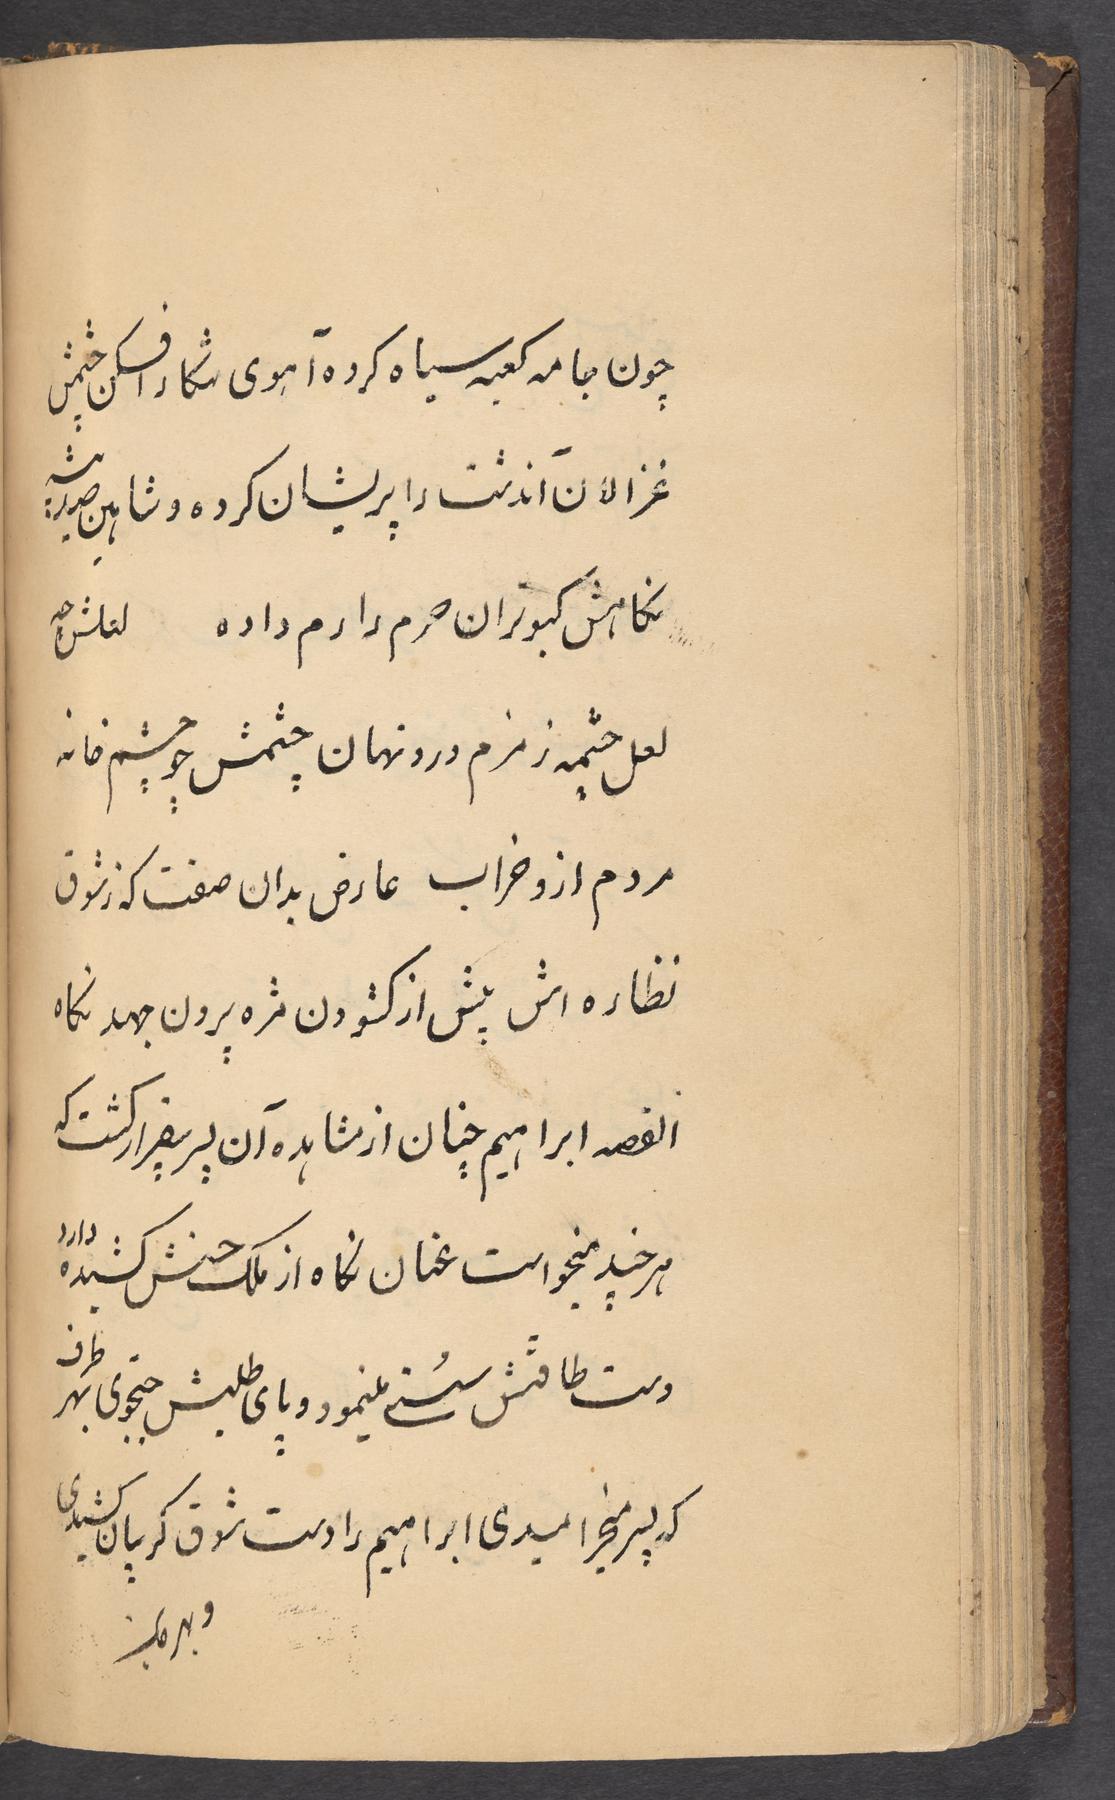 چون جامه کعبه سیاه کرده آهوی شکار افکن چشمش
غزالان آندشت را پریشان کرده و شاهین صید پیشه
نکاهش کبوتران حرم را رم داده لعلش چه
لعل چشمه زمزم درو نهان چشمش چو چشم خانه
مردم ازو خراب عارض بدان صفت که ز شوق
نظاره اش پیش از کشودن مژه بیرون جهد نکاه
القصه ابراهیم چنان از مشاهده آن پسر بیقرار کشت که
هر چند میخواست عنان نکاه از ملک حسنش کشیده دارد
دست طاقتش سستی مینمود و پای طلبش جستجوی بهر طرف
که پسر میخرامیدی ابراهیم را دست شوق کریبان کشیدی
و بهر